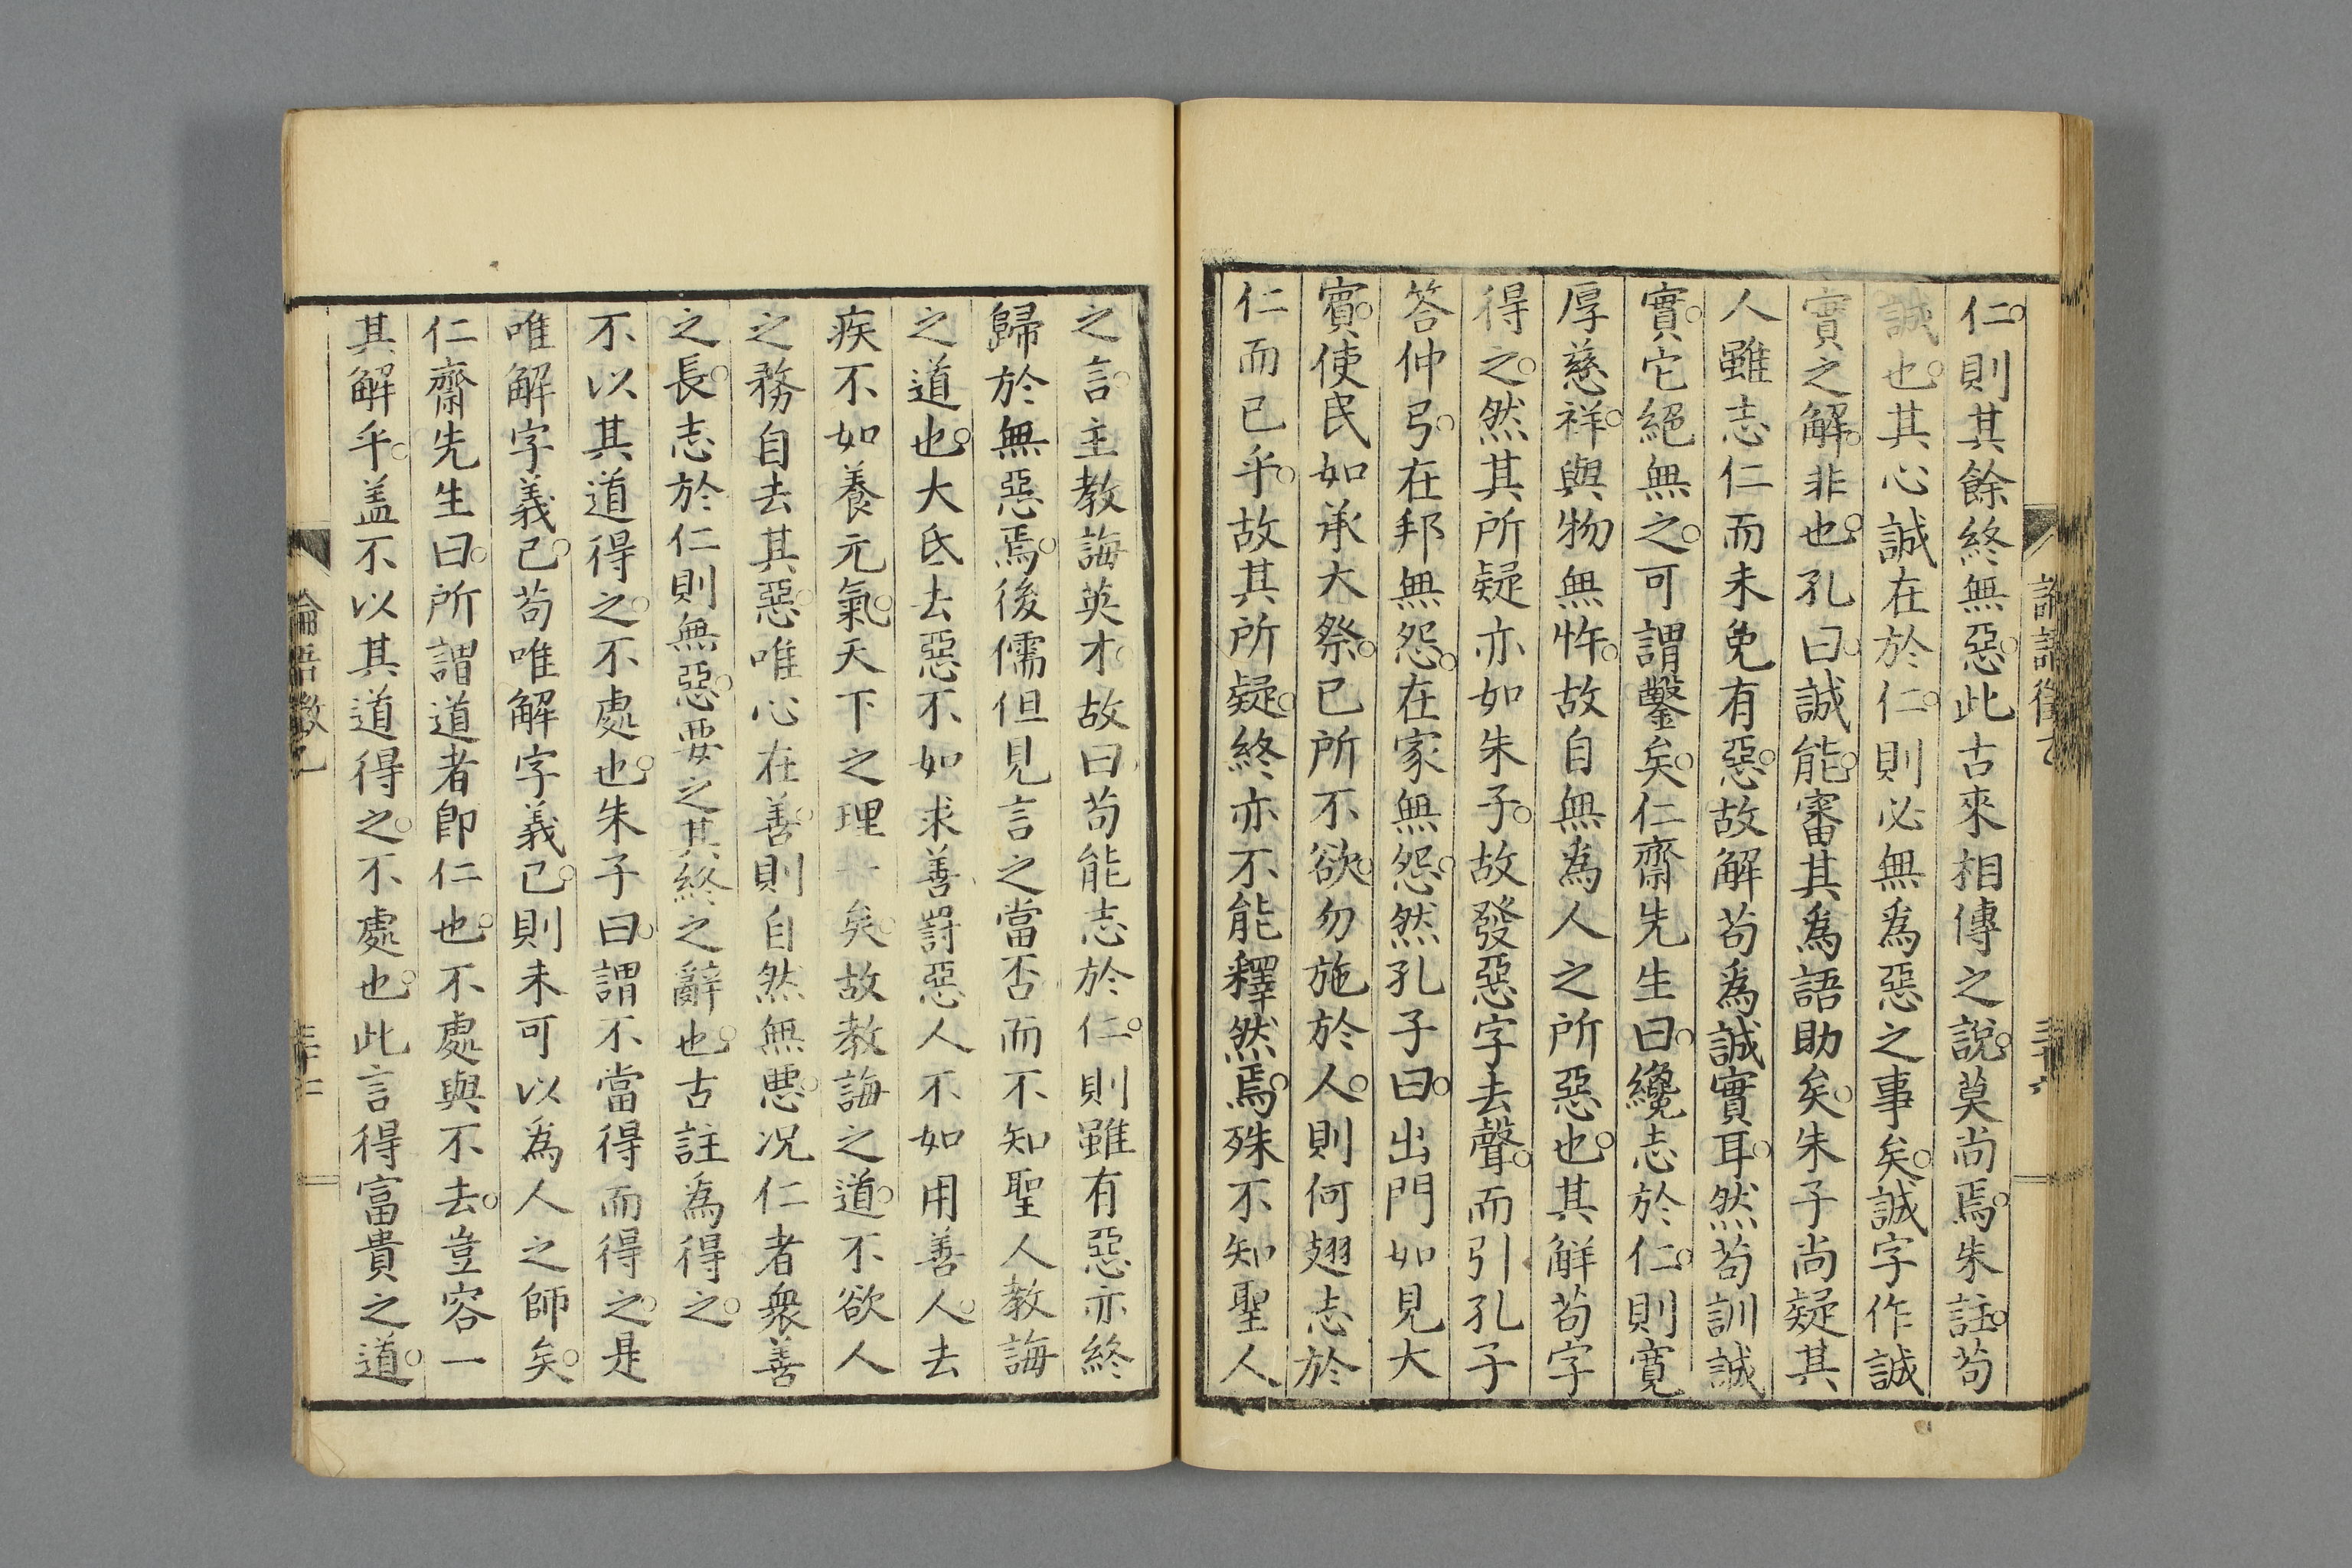 仁則其餘終無惡此古來相傳之說莫尚焉朱註苟
誠也其心誠在於仁則必無爲惡之事矣誠字作誠
實之解非也孔曰誠能審其爲語助矣朱子尚疑其
人雖志仁而未免有惡故解苟爲誠實耳然苟訓誠
實它絕無之可謂鑿矣仁齋先生曰纔志於仁則寬
厚慈祥與物無忤故自無爲人之所惡也其解苟字
得之然其所疑亦如朱子故發惡字去聲而引孔子
答仲弓在邦無怨在家無怨然孔子曰出門如見大
賓使民如承大祭己所不欲勿施於人則何翅志於
仁而已乎故其所疑終亦不能釋然焉殊不知聖人
之言主教誨英才故曰苟能志於仁則雖有惡亦終
歸於無惡焉後儒但見言之當否而不知聖人教誨
之道也大氐去惡不如求善罰惡人不如用善人去
疾不如養元氣天下之理 矣故教誨之道不欲人
之務自去其惡唯心在善則自然無惡况仁者衆善
之長志於仁則無惡要之其終之辭也古註爲得之
不以其道得之不處也朱子曰謂不當得而得之是
唯解字義已苟唯解字義已則未可以爲人之師矣
仁齋先生曰所謂道者卽仁也不處與不去豈容一
其解乎盖不以其道得之不處也此言得富貴之道
論語徵乙